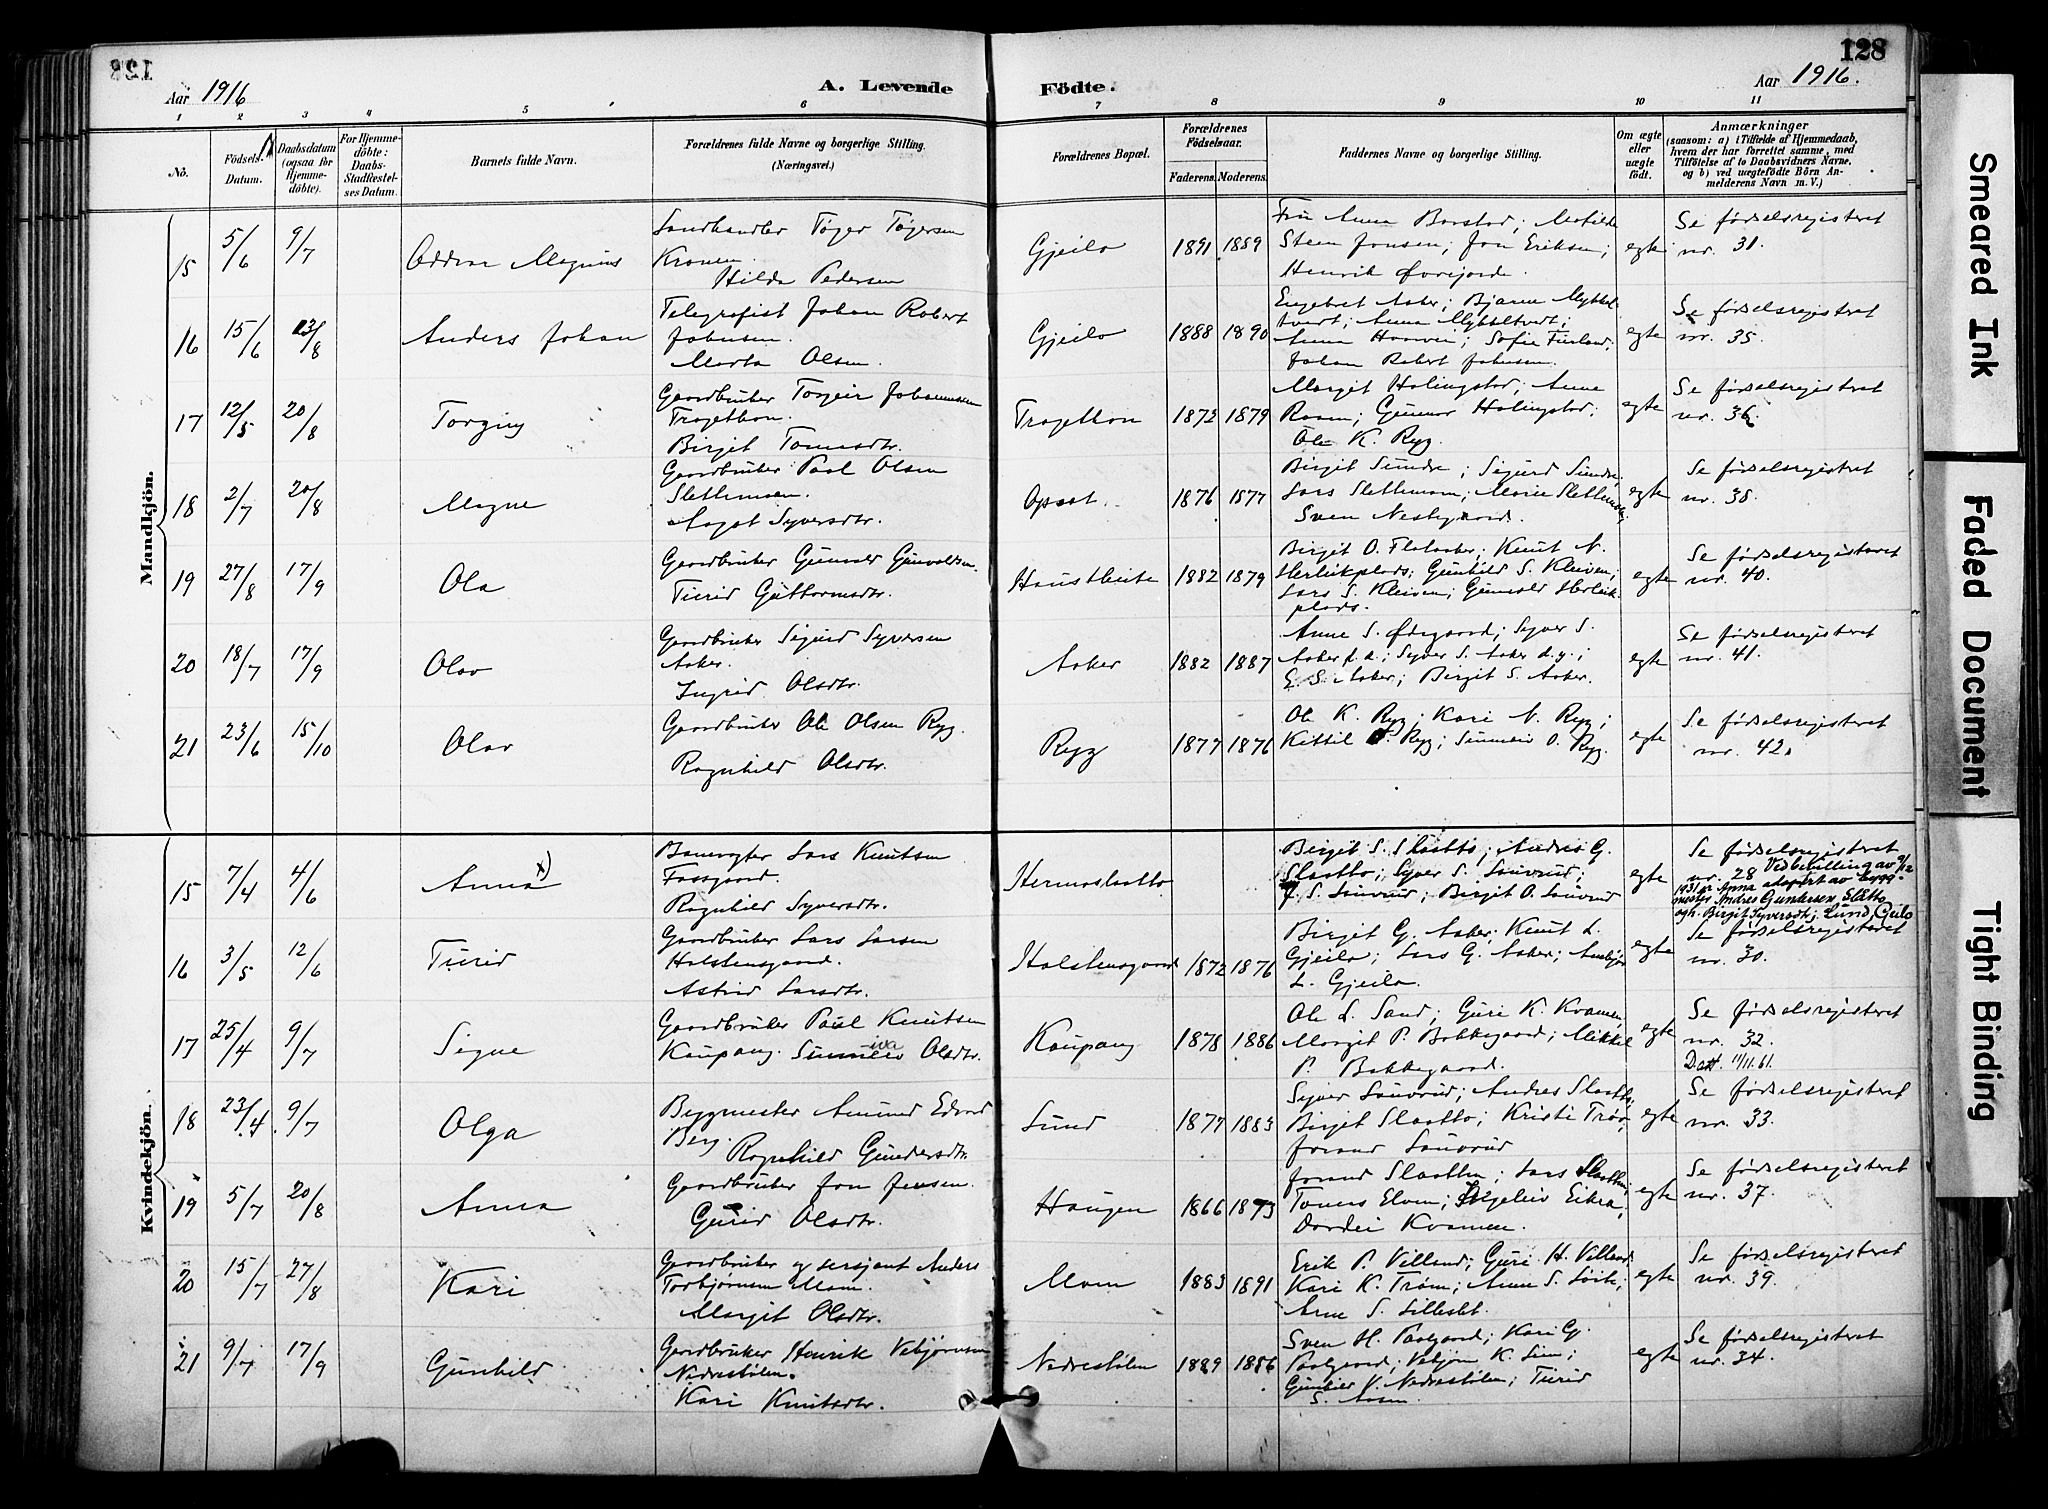 128
Aar 1916
A. Levende
Födte.
Aar 1916.
1 2 3 4 5 6 7 8 9 10 11
No.
Födsels-
Datum.
Daabsdatum
(ogsaa for
Hjemme-
döbte).
For Hjemme-
döbte:
Daabs-
Stadfæstel-
ses Datum.
Barnets fulde Navn.
Forældrenes fulde Navne og borgerlige Stilling.
(Næringsvei.)
Forældrenes Bopæl.
Forældrenes
Födselsaar.
Faderens. Moderens.
Faddernes Navne og borgerlige Stilling.
Om ægte
eller
uægte
födt.
Anmærkninger
(saasom: a) i Tilfælde af Hjemmedaab,
hvem der har forrettet samme, med
Tilföielse af to Daabsvidners Navne,
og b) ved uægtefödte Börn An-
melderens Navn m. V.)
Mandkjön.
15 5/6 9/7 Oddvar Magnus
Landhandler Tøger Tøgersen
Kronen.
Hilda Pedersen
Gjeilo 1891 1889
Fru Anna Borstad; Matilde
Steen Jensen; Jon Eriksen;
Henrik Øvrejorde.
egte
Se fødselsregistret
nr. 31.
16 15/6 13/8 Anders Johan
Telegrafist Johan Robert
Johnsen.
Marta Olsen.
Gjeilo 1888 1890
Engebret Aaker; Bjarne Mykkel-
tvedt; Anna Mykkeltvedt;
Anna Haaver; Sofie Furland;
Johan Robert Johnsen.
egte
Se fødselsregistret
nr. 35.
17 12/5 20/8 Torgny
Gaardbruker Torgeir Johannesen
Tragethon.
Birgit Tomasdtr.
Tragethon 1872 1879
Margit Halingstad; Anne
Raaen; Gunnar Halingstad;
Ole K. Ryg.
egte
Se fødselsregistret
nr. 36
18 2/7 20/8 Magne
Gaardbruker Paal Olsen
Slettemoen.
Aagot Syversdtr.
Opsat. 1876 1877
Birgit Sundre; Sigurd Sundre;
Lars Slettemoen; Marie Slettemoen;
Sven Nestegaard.
egte
Se fødselsregistret
nr. 38.
19 27/8 17/9 Ola
Gaardbruker Gunvald Gunvaldsen.
Turid Guttormsdtr.
Haustbeite 1882 1879
Birgit O. Flataaker; Knut N.
Herleikplads; Gunhild S. Kleiven;
Lars S. Kleiven; Gunvald Herleik-
plads.
egte
Se fødselsregistret
nr. 40.
20 18/7 17/9 Olav
Gaardbruker Sigurd Syversen
Aaker.
Ingrid Olsdtr.
Aaker 1882 1887
Anne S. Ødegaard; Syver S.
Aaker d.e.; Syver S. Aaker d.y.;
E. S. Aaker; Birgit S. Aaker.
egte
Se fødselsregistret
nr. 41.
21 23/6 15/10 Olav
Gaardbruker Ole Olsen Ryg.
Ragnhild Olsdtr.
Ryg 1877 1876
Ole K. Ryg; Kari N. Ryg;
Kittil O. Ryg; Sunneiv O. Ryg.
egte
Se fødselsregistret
nr. 42.
Kvindekjön.
15 7/4 4/6 Anna x)
Banevogter Lars Knutsen
Fossgaard.
Ragnhild Syversdtr.
Hermoslaatto
Birgit S. Slaatto; Andres G.
Slaatto; Syver S. Sauvrud;
J. S. Sauvrud; Birgit O. Sauvrud
egte
Se fødselsregistret
nr. 28 Ved bevilling av 9/12
1931 er Anna adoptert av bygg-
mester Andres Gundersen Slåtto
og h. Birgit Syversdtr, Lund, Geilo
16 3/5 12/6 Turid
Gaardbruker Lars Larsen
Halstensgaard.
Astrid Larsdtr.
Halstensgaard 1872 1876
Birgit G. Aaker; Knut L.
Gjeilo; Lars G. Aaker; Margit
L. Gjeilo.
egte
Se fødselsregistret
nr. 30.
17 25/4 9/7 Signe
Gaardbruker Paul Knutsen
Kaupang. Sunneiv iva Olsdtr.
Kaupang 1878 1886
Ole L. Sand; Guri K. Kvamen;
Margit P. Bakkegaard; Mikkel
P. Bakkegaard.
egte
Se fødselsregistret
nr. 32.
Datt. 11/11.61.
18 23/4 9/7 Olga
Bygmester Amund Edvard
Berg.
Ragnhild Gundersdtr.
Lund 1877 1883
Syver Sauvrud; Andres Slaatto;
Birgit Slaatto; Kristi Trøv;
Jorand Sauvrud
egte
Se fødselsregistret
nr. 33.
19 5/7 20/8 Anna
Gaardbruker Jon Jensen.
Gurid Olsdtr.
Haugen 1866 1873
Jorand Slaatten; Lars Slaatten;
Tomas Elven; Ingeleiv Eikra;
Dordei Kvamen.
egte
Se fødselsregistret
nr. 37.
20 15/7 27/8 Kari
Gaardbruker og sersjant Anders
Torbjørnsen Moen.
Margit Olsdtr.
Moen 1883 1891
Erik P. Villand; Guri H. Villand
Kari K. Trøim; Anne S. Sørbe;
Arne S. Lilleslet.
egte
Se fødselsregistret
nr. 39.
21 9/7 17/9 Gunhild
Gaardbruker Henrik Vebjørnsen
Nedrestølen.
Kari Knutsdtr.
Nedrestølen 1889 1886
Sven H. Paalgaard; Kari G.
Paalgaard; Vebjørn K. Lien;
Gunhild V. Nedrestølen; Turid
S. Aasen.
egte
Se fødselsregistret
nr. 34.
Smeared Ink
Faded Document
Tight Binding